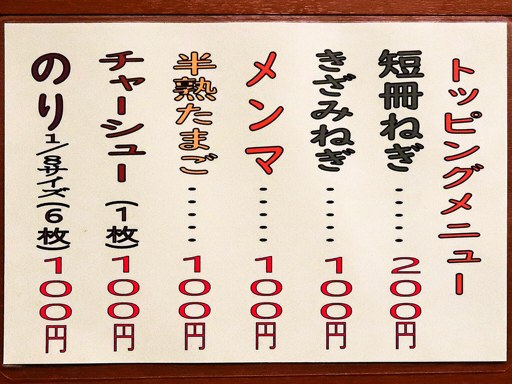 トッピングメニュー
短冊ねぎ・・・・・200円
きざみねぎ・・・・100円
メンマ・・・・・100円
半熟たまご・・・・・100円
チャーシュー(1枚)100円
のり1/8サイズ(6枚)100円